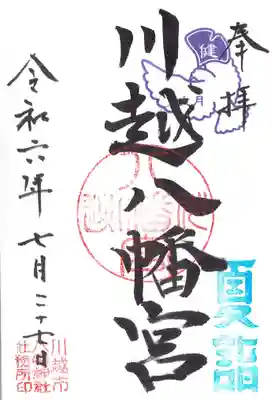 奉拝
健
月
川越八幡宮
夏詣
令和六年七月二十六日
川越市
八幡神社
社務所印